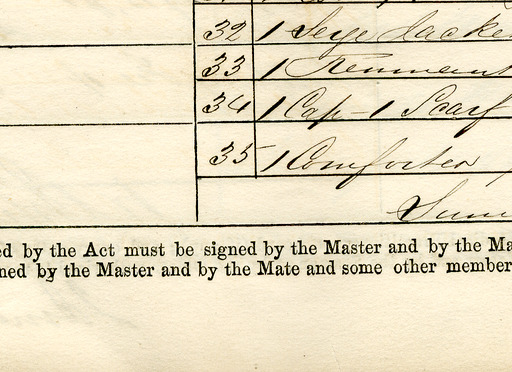 32 1 Serge Jacke
33 1 Remnant
34 1 Cap - 1 Scarf
35 1 Comforter
Sum
ed by the Act must be signed by the Master and by the Ma
ned by the Master and by the Mate and some other member